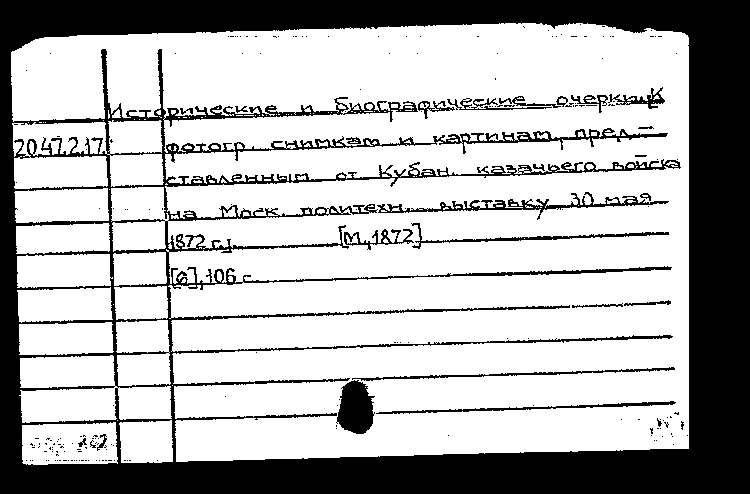 Исторические и биографические очерки. [К
20.47.2.17. фотогр. снимкам и картинам, пред-
ставленным от Кубан. казачьего войска
на Моск. политехн. выставку 30 мая
1872 г.]. [М., 1872]
[6], 106 с.